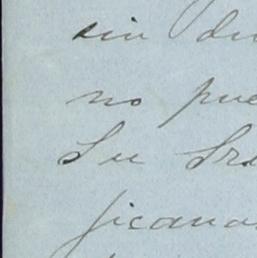 sin du
no pue
Su Sra
ficana